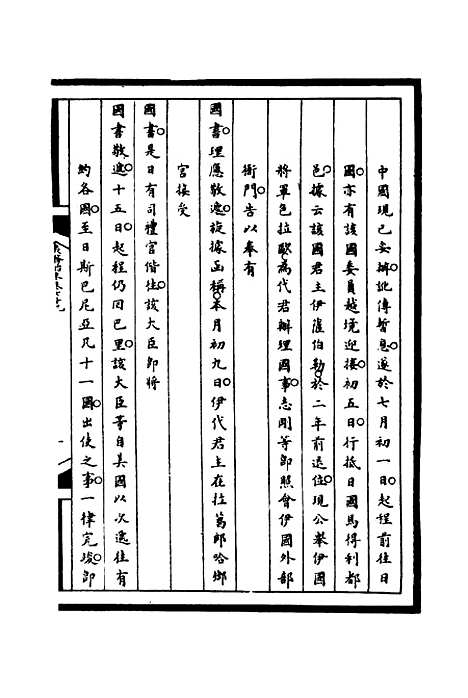 中國現已妥辦訛傳暫息遂於七月初一日起程前往日
國亦有該國委員越境迎接初五日行抵日國馬得利都
邑據云該國君主伊薩伯勒於二年前退位現公舉伊國
將軍色拉歐為代君辦理國事志剛等即照會伊國外部
衙門告以奉有
國書理應敬遞旋據函稱本月初九日伊代君主在拉葛郎哈鄉
宮接受
國書是日有司禮官偕往該大臣即將
國書敬遞十五日起程仍回巴里該大臣等自美國以次遞往有
約各國至日斯巴尼亞凡十一國出使之事一律完竣即